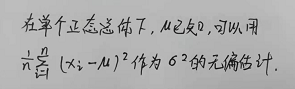 在单个正态总体下，μ已知，可以用
1/n ∑_{i=1}^{n} (x_i-μ)² 作为 σ² 的无偏估计.